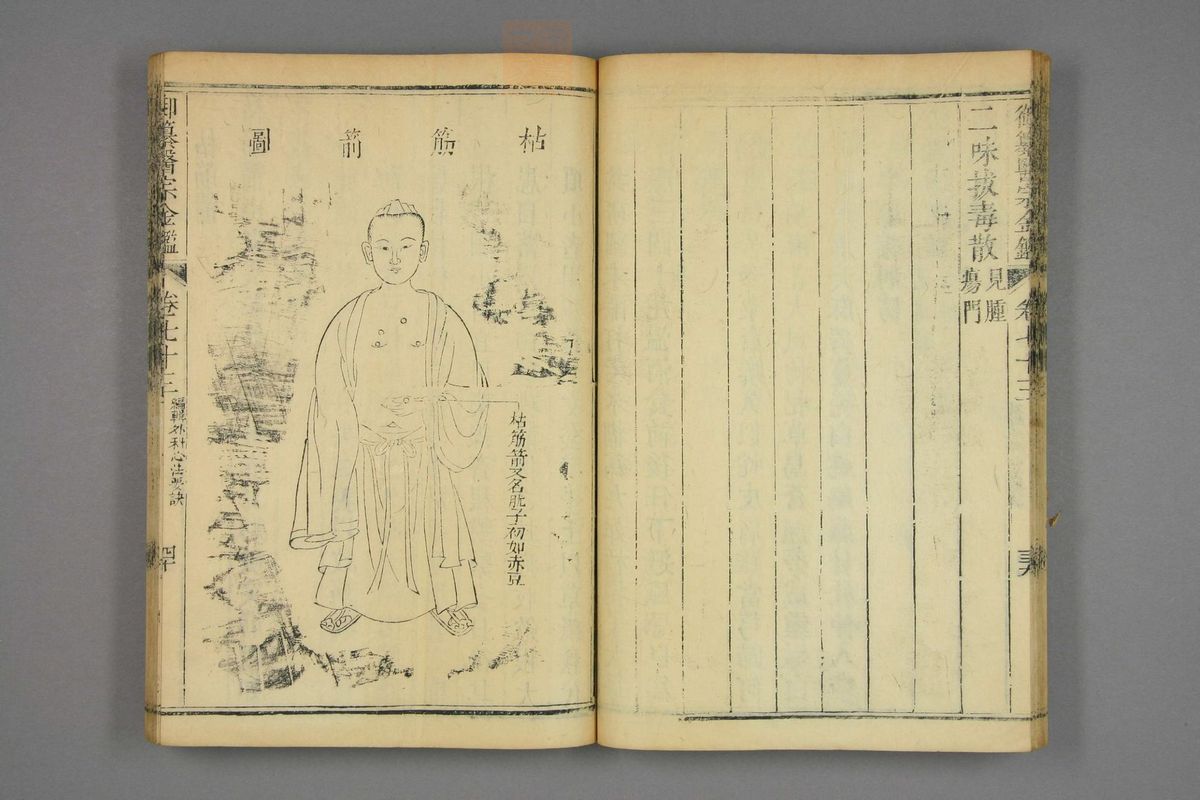 御纂醫宗金鑑
卷七十三
三九
二味拔毒散 見腫瘍門
枯筋箭圖
枯筋箭又名肬子初如赤豆
御纂醫宗金鑑
卷七十三
編輯外科心法要訣
四十